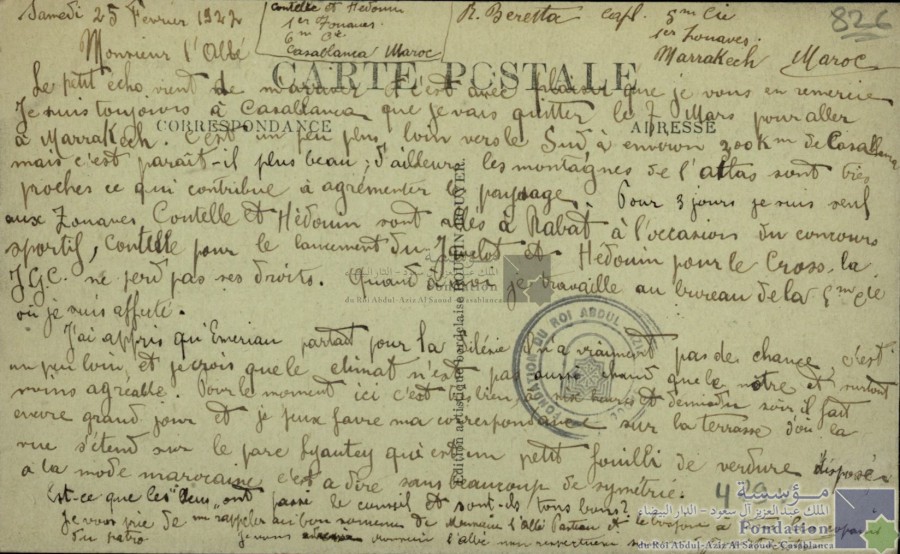 Samedi 25 Février 1922
Contelle et Hédouin
1er Zouaves
6m Cie
Casablanca Maroc
R. Beretta capl. 5m Cie
1er Zouaves
Marrakech Maroc
826
Monsieur l'Abbé
CARTE POSTALE
CORRESPONDANCE
ADRESSE
Le petit écho vient de m'arriver et c'est avec plaisir que je vous en remercie
Je suis toujours à Casablanca que je vais quitter le 7 Mars pour aller
à Marrakech. C'est un peu plus loin vers le Sud à environ 300 Km de Casablanca
mais c'est paraît-il plus beau ; d'ailleurs les montagnes de l'atlas sont très
proches ce qui contribue à agrémenter le paysage. Pour 3 jours je suis seul
aux Zouaves, Contelle et Hédouin sont allés à Rabat à l'occasion du concours
sportif, Contelle pour le lancement du Javelot et Hédouin pour le Cross. la
J.G.C. ne perd pas ses droits. Quand à moi je travaille au bureau de la 5me Cie
où je suis affecté.
J'ai appris qu'Emerian partait pour la Silésie il n'a vraiment pas de chance, c'est
un peu loin, et je crois que le climat n'est pas aussi chaud que le notre et surtout
moins agréable. Pour le moment ici c'est très bien, à six heures et demi du soir il fait
encore grand jour et je peux faire ma correspondance sur la terrasse d'où la
vue s'étend sur le parc Lyautey qui est un petit fouilli de verdure disposé
à la mode marocaine c'est à dire sans beaucoup de symétrie.
Est-ce que les ont passé le conseil et sont-ils tous bons ?
Je vous prie de me rappeler au bon souvenir de Monsieur l'abbé et
du patro
Edition artistique bordelaise BOUTIN-BOUQUIER.
FONDATION DU ROI ABDUL AZIZ
الملك عبدالعزيز آل سعود - الدار البيضاء
Foundation
du Roi Abdul-Aziz Al Saoud - Casablanca
مؤسسة
الملك عبدالعزيز آل سعود - الدار البيضاء
Fondation
du Roi Abdul-Aziz Al Saoud - Casablanca